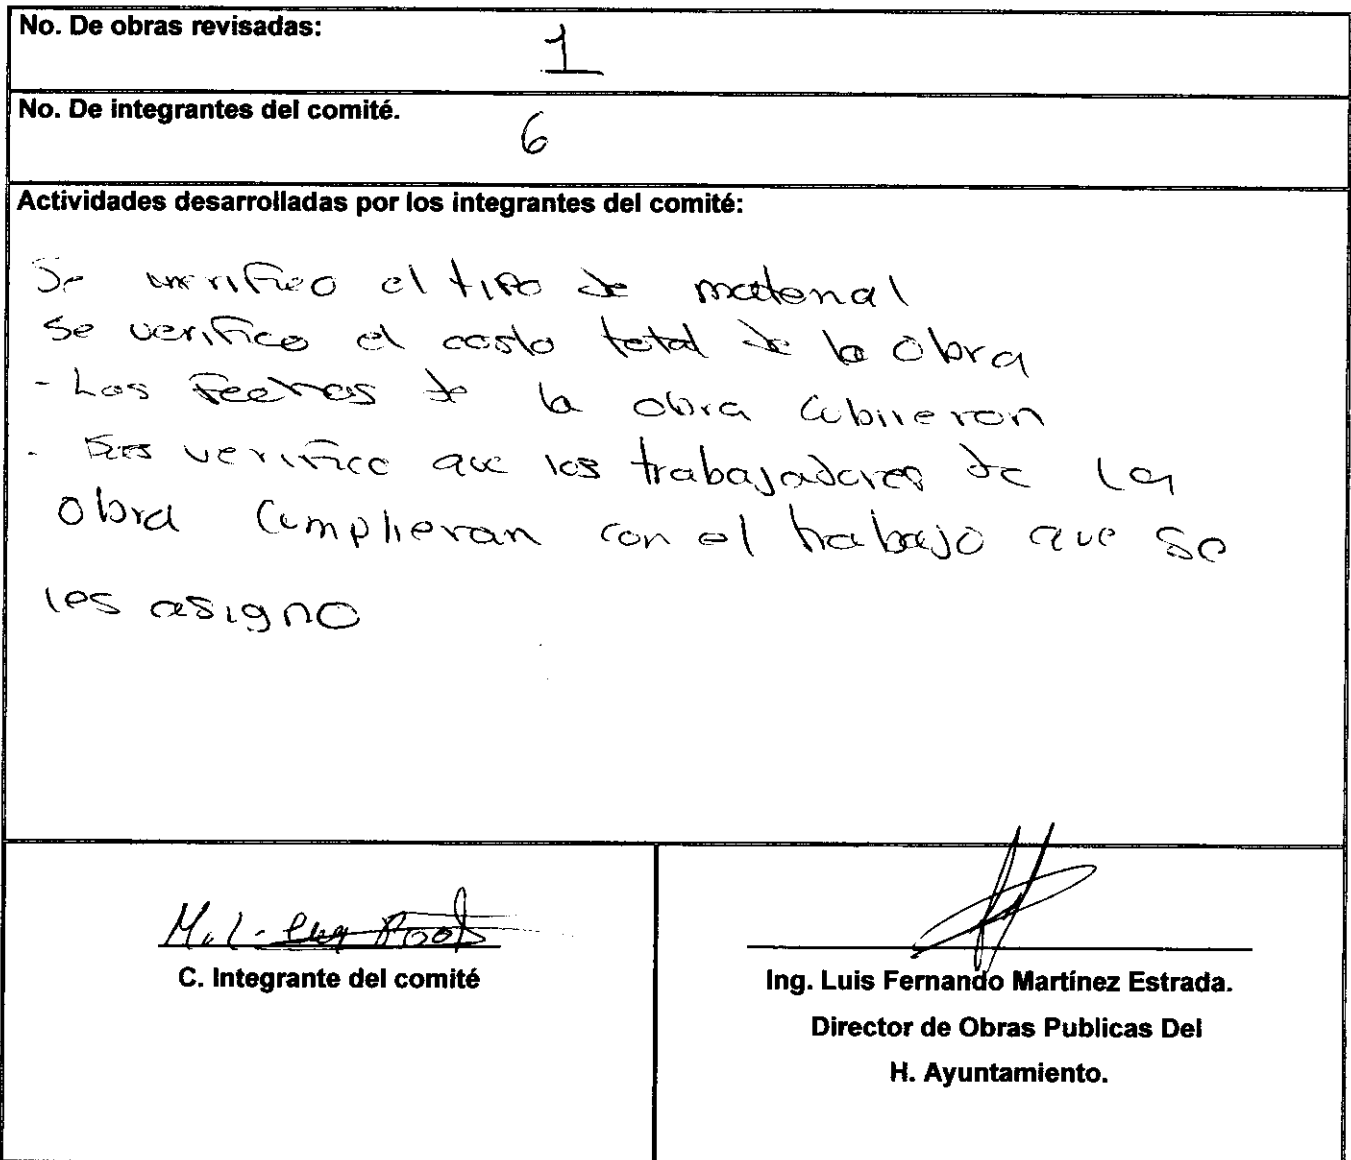 No. De obras revisadas:
1
No. De integrantes del comité.
6
Actividades desarrolladas por los integrantes del comité:
Se verifico el tipo de material
Se verifico el costo total de la obra
- Las Fechas de la obra cubrieron
- verifico que los trabajadores de la
obra cumplieran con el trabajo que se
les asigno
M. L.
C. Integrante del comité
Ing. Luis Fernando Martínez Estrada.
Director de Obras Publicas Del
H. Ayuntamiento.